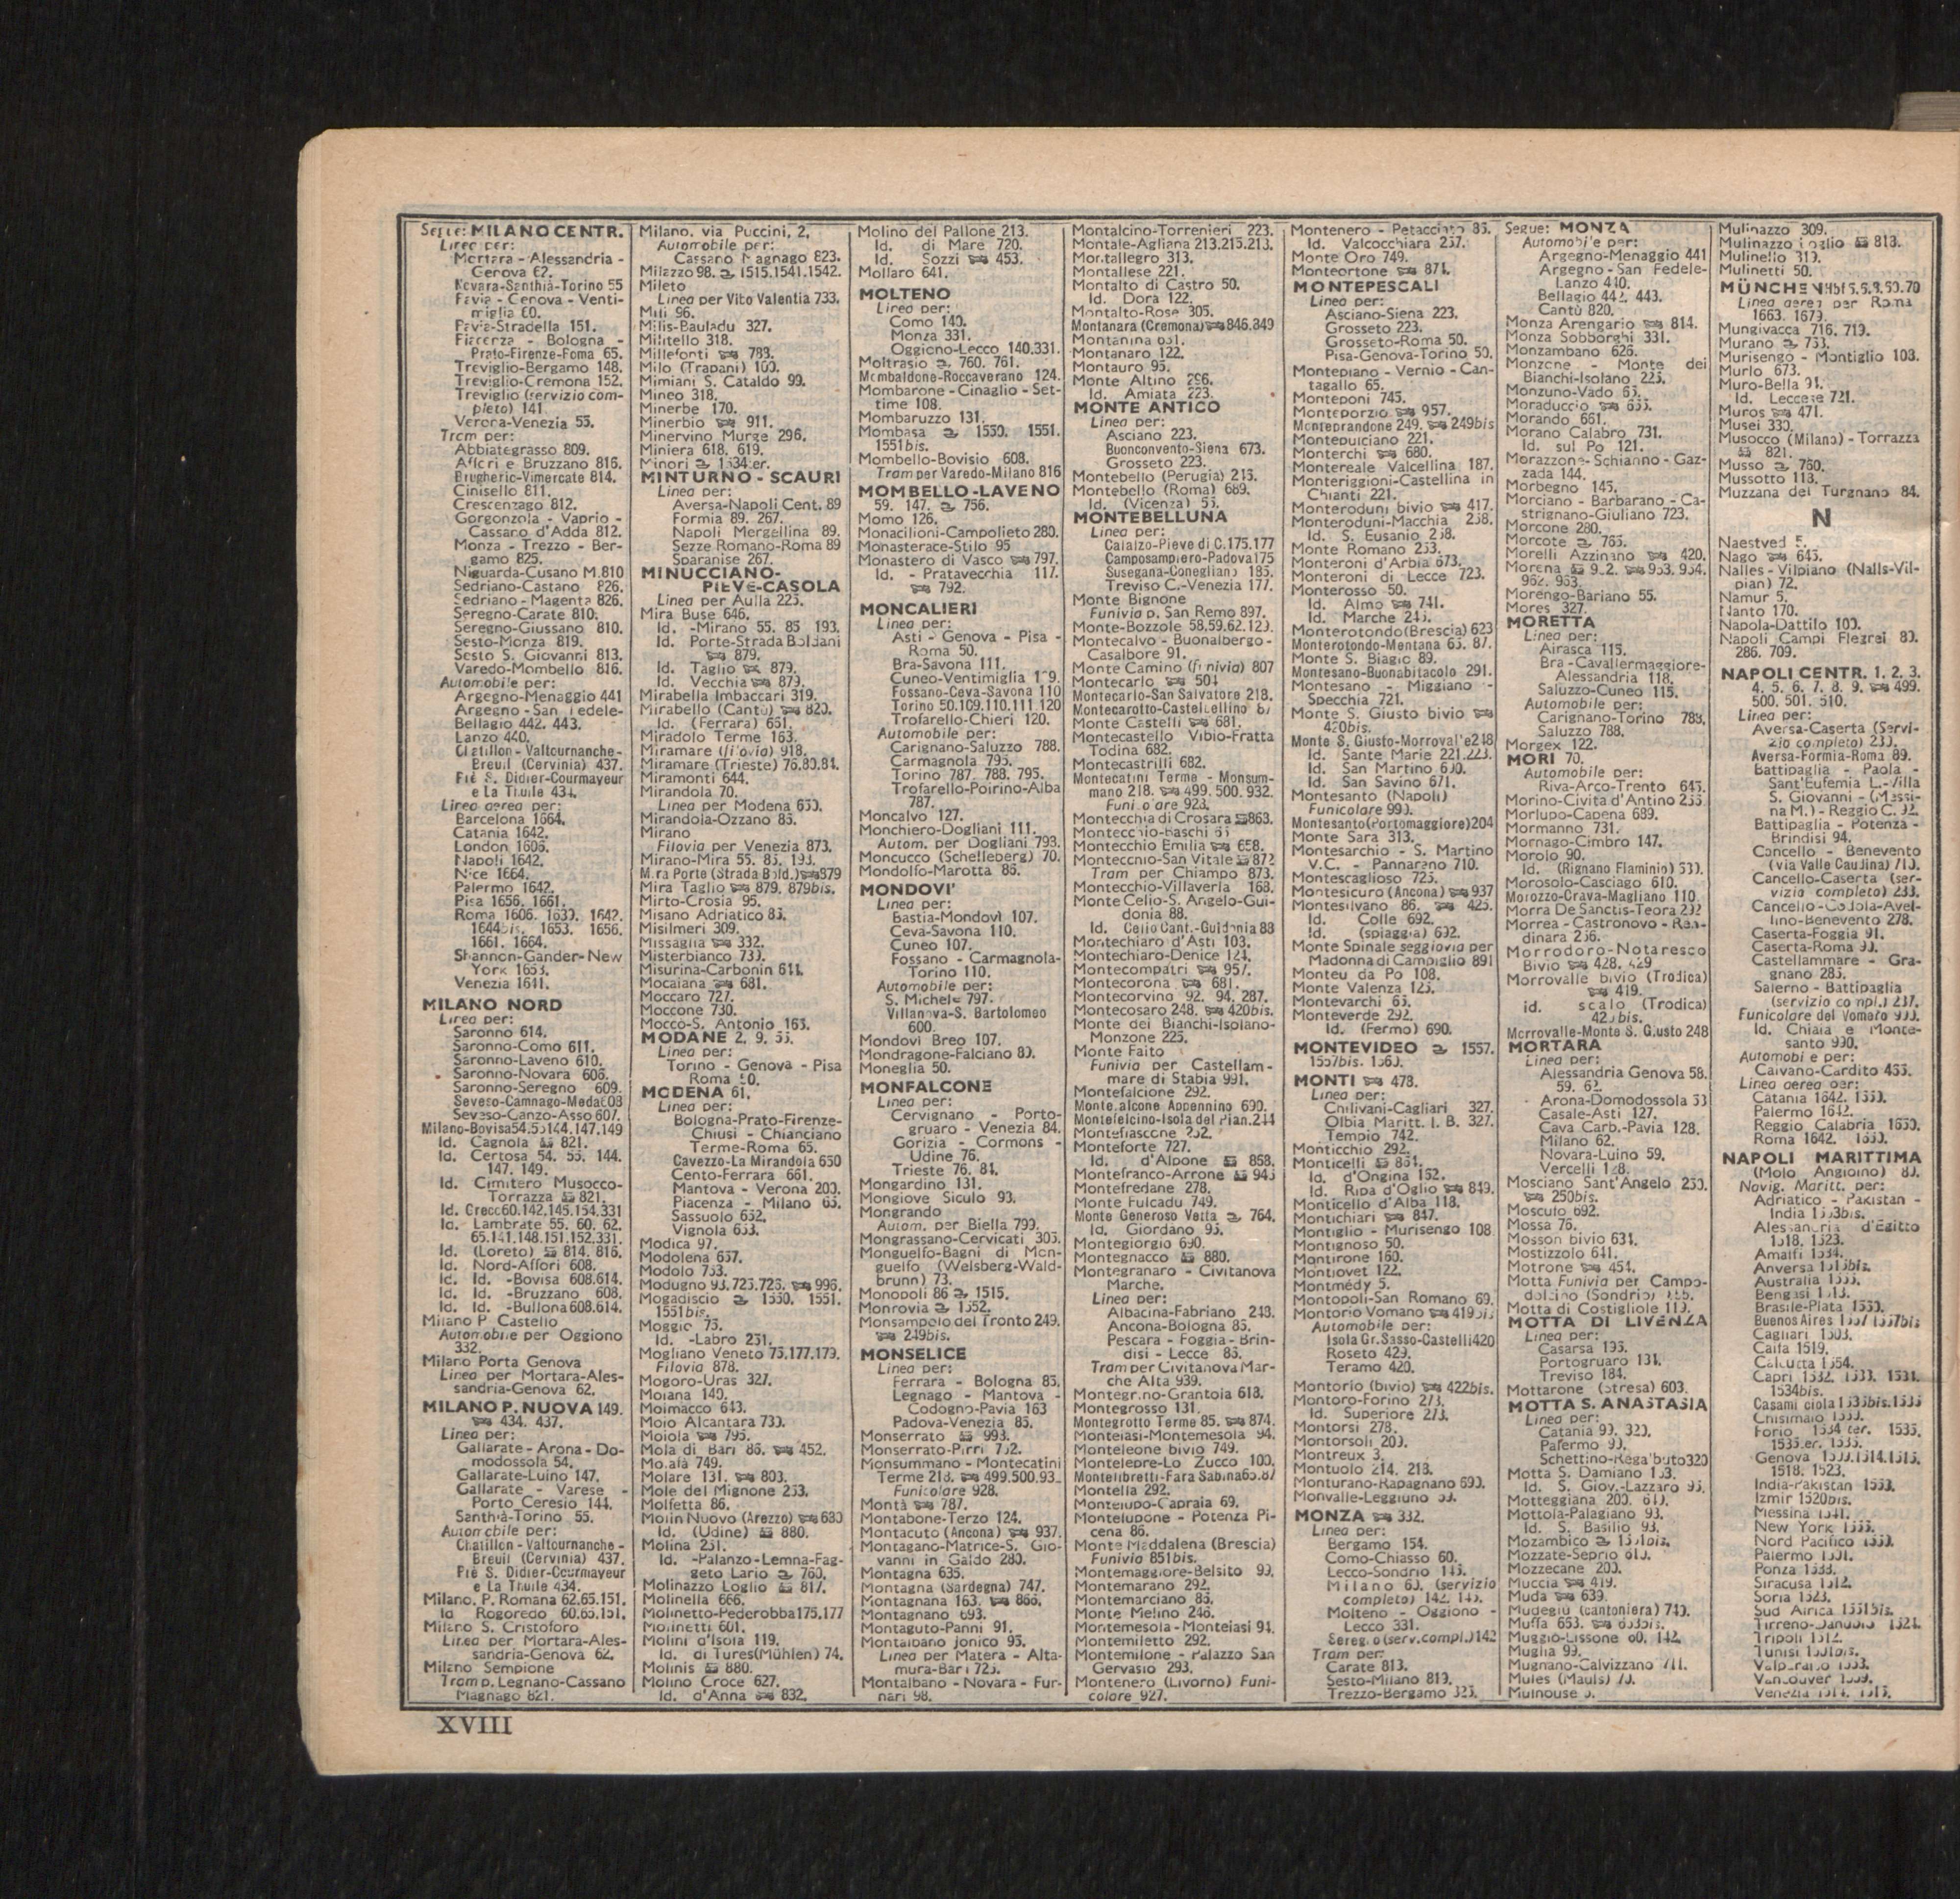 Segue: MILANO CENTR.
Linee per:
Mortara - Alessandria -
Genova 62.
Novara-Santhià-Torino 55
Pavia - Genova - Venti-
miglia 60.
Pavia-Stradella 151.
Piacenza - Bologna -
Prato-Firenze-Roma 65.
Treviglio-Bergamo 148.
Treviglio-Cremona 152.
Treviglio (servizio com-
pleto) 141.
Verona-Venezia 55.
Tram per:
Abbiategrasso 809.
Affori e Bruzzano 816.
Brugherio-Vimercate 814.
Cinisello 811.
Crescenzago 812.
Gorgonzola - Vaprio -
Cassano d'Adda 812.
Monza - Trezzo - Ber-
gamo 825.
Niguarda-Cusano M.810
Sedriano-Castano 826.
Sedriano - Magenta 826.
Seregno-Carate 810.
Seregno-Giussano 810.
Sesto-Monza 819.
Sesto S. Giovanni 813.
Varedo-Mombello 816.
Automobile per:
Argegno-Menaggio 441
Argegno - San Fedele-
Bellagio 442. 443.
Lanzo 440.
Chatillon - Valtournanche -
Breuil (Cervinia) 437.
Pré S. Didier-Courmayeur
e La Thuile 434.
Linea aerea per:
Barcelona 1664.
Catania 1642.
London 1606.
Napoli 1642.
Nice 1664.
Palermo 1642.
Pisa 1656. 1661.
Roma 1606. 1630. 1642.
1644bis. 1653. 1656.
1661. 1664.
Shannon-Gander-New
York 1653.
Venezia 1641.
MILANO NORD
Linea per:
Saronno 614.
Saronno-Como 611.
Saronno-Laveno 610.
Saronno-Novara 606.
Saronno-Seregno 609.
Seveso-Camnago-Meda608
Seveso-Canzo-Asso 607.
Milano-Bovisa54.55144.147.149
Id. Cagnola 821.
Id. Certosa 54. 55. 144.
147. 149.
Id. Cimitero Musocco-
Torrazza 821.
Id. Greco60.142.145.154.331
Id. Lambrate 55. 60. 62.
65.141.148.151.152.331.
Id. (Loreto) 814. 816.
Id. Nord-Affori 608.
Id. Id. -Bovisa 608.614.
Id. Id. -Bruzzano 608.
Id. Id. -Bullona 608.614.
Milano P. Castello
Automobile per Oggiono
332.
Milano Porta Genova
Linea per Mortara-Ales-
sandria-Genova 62.
MILANO P. NUOVA 149.
434. 437.
Linea per:
Gallarate - Arona - Do-
modossola 54.
Gallarate-Luino 147.
Gallarate - Varese -
Porto Ceresio 144.
Santhià-Torino 55.
Automobile per:
Chatillon - Valtournanche -
Breuil (Cervinia) 437.
Pré S. Didier-Courmayeur
e La Thuile 434.
Milano. P. Romana 62.65.151.
Id. Rogoredo 60.65.151.
Milano S. Cristoforo
Linea per Mortara-Ales-
sandria-Genova 62.
Milano Sempione
Tram p. Legnano-Cassano
Magnago 821.
Milano. via Puccini, 2.
Automobile per:
Cassano Magnago 823.
Milazzo 98. 1515.1541.1542.
Mileto
Linea per Vibo Valentia 733.
Mili 96.
Milis-Bauladu 327.
Militello 318.
Millefonti 783.
Milo (Trapani) 100.
Mimiani S. Cataldo 99.
Mineo 318.
Minerbe 170.
Minerbio 911.
Minervino Murge 296.
Miniera 618. 619.
Minori 1534ter.
MINTURNO - SCAURI
Linea per:
Aversa-Napoli Cent. 89
Formia 89. 267.
Napoli Mergellina 89.
Sezze Romano-Roma 89
Sparanise 267.
MINUCCIANO-
PIEVE-CASOLA
Linea per Aulla 225.
Mira Buse 646.
Id. -Mirano 55. 85 193.
Id. Porte-Strada Boldani
879.
Id. Taglio 879.
Id. Vecchia 879.
Mirabella Imbaccari 319.
Mirabello (Cantù) 820.
Id. (Ferrara) 661.
Miradolo Terme 163.
Miramare (filovia) 918.
Miramare (Trieste) 76.80.84.
Miramonti 644.
Mirandola 70.
Linea per Modena 650.
Mirandola-Ozzano 85.
Mirano
Filovia per Venezia 873.
Mirano-Mira 55. 85. 193.
Mira Porte (Strada Bold.) 879
Mira Taglio 879. 879bis.
Mirto-Crosia 95.
Misano Adriatico 85.
Misilmeri 309.
Missaglia 332.
Misterbianco 739.
Misurina-Carbonin 611.
Mocaiana 681.
Moccaro 727.
Moccone 730.
Mocco-S. Antonio 163.
MODANE 2. 9. 55.
Linea per:
Torino - Genova - Pisa
Roma 50.
MODENA 61.
Linea per:
Bologna-Prato-Firenze-
Chiusi - Chianciano
Terme-Roma 65.
Cavezzo-La Mirandola 650
Cento-Ferrara 661.
Mantova - Verona 200.
Piacenza - Milano 65.
Sassuolo 652.
Vignola 653.
Modica 97.
Modolena 657.
Modolo 753.
Modugno 93.725.726. 996.
Mogadiscio 1550. 1551.
1551bis.
Moggio 75.
Id. -Labro 251.
Mogliano Veneto 75.177.179.
Filovia 878.
Mogoro-Uras 327.
Moiana 140.
Moimacco 643.
Moio Alcantara 739.
Moiola 795.
Mola di Bari 86. 452.
Molalà 749.
Molare 131. 803.
Mole del Mignone 253.
Molfetta 86.
Molin Nuovo (Arezzo) 680
Id. (Udine) 880.
Molina 251.
Id. -Palanzo-Lemna-Fag-
geto Lario 760.
Molinazzo Loglio 817.
Molinella 666.
Molinetto-Pederobba175.177
Molinetti 601.
Molini d'Isola 119.
Id. di Tures(Mühlen) 74.
Molinis 880.
Molino Croce 627.
Id. d'Anna 832.
Molino del Pallone 213.
Id. di Mare 720.
Id. Sozzi 453.
Mollaro 641.
MOLTENO
Linea per:
Como 140.
Monza 331.
Oggiono-Lecco 140.331.
Moltrasio 760. 761.
Mombaldone-Roccaverano 124.
Mombarone - Cinaglio - Set-
time 108.
Mombaruzzo 131.
Mombasa 1550. 1551.
1551bis.
Mombello-Bovisio 608.
Tram per Varedo-Milano 816
MOMBELLO - LAVENO
59. 147. 756.
Momo 126.
Monacilioni-Campolieto 280.
Monasterace-Stilo 95
Monastero di Vasco 797.
Id. - Pratavecchia 117.
792.
MONCALIERI
Linea per:
Asti - Genova - Pisa -
Roma 50.
Bra-Savona 111.
Cuneo-Ventimiglia 119.
Fossano-Ceva-Savona 110
Torino 50.109.110.111.120
Trofarello-Chieri 120.
Automobile per:
Carignano-Saluzzo 788.
Carmagnola 795.
Torino 787. 788. 795.
Trofarello-Poirino-Alba
787.
Moncalvo 127.
Monchiero-Dogliani 111.
Autom. per Dogliani 793.
Moncucco (Schelleberg) 70.
Mondolfo-Marotta 86.
MONDOVI'
Linea per:
Bastia-Mondovì 107.
Ceva-Savona 110.
Cuneo 107.
Fossano - Carmagnola-
Torino 110.
Automobile per:
S. Michele 797.
Villanova-S. Bartolomeo
600.
Mondovì Breo 107.
Mondragone-Falciano 89.
Moneglia 50.
MONFALCONE
Linea per:
Cervignano - Porto-
gruaro - Venezia 84.
Gorizia - Cormons -
Udine 76.
Trieste 76. 84.
Mongardino 131.
Mongiove Siculo 93.
Mongrando
Autom. per Biella 799.
Mongrassano-Cervicati 305.
Monguelfo-Bagni di Mon-
guelfo (Welsberg-Wald-
brunn) 73.
Monopoli 86 1515.
Monrovia 1552.
Monsampolo del Tronto 249.
249bis.
MONSELICE
Linea per:
Ferrara - Bologna 85.
Legnago - Mantova -
Codogno-Pavia 163
Padova-Venezia 85.
Monserrato 993.
Monserrato-Pirri 752.
Monsummano - Montecatini
Terme 218. 499.500.932
Funicolare 928.
Montà 787.
Montabone-Terzo 124.
Montacuto (Ancona) 937.
Montagano-Matrice-S. Gio-
vanni in Galdo 280.
Montagna 635.
Montagna (Sardegna) 747.
Montagnana 163. 866.
Montagnano 693.
Montaguto-Panni 91.
Montalbano Jonico 95.
Linea per Matera - Alta-
mura-Bari 725.
Montalbano - Novara - Fur-
nari 98.
Montalcino-Torrenieri 223.
Montale-Agliana 213.215.218.
Montallegro 313.
Montallese 221.
Montalto di Castro 50.
Id. Dora 122.
Montalto-Rose 305.
Montanara (Cremona) 846.849
Montanina 651.
Montanaro 122.
Montauro 95.
Monte Altino 296.
Id. Amiata 223.
MONTE ANTICO
Linea per:
Asciano 223.
Buonconvento-Siena 673.
Grosseto 223.
Montebello (Perugia) 215.
Montebello (Roma) 689.
Id. (Vicenza) 55.
MONTEBELLUNA
Linea per:
Calalzo-Pieve di C.175.177
Camposampiero-Padova175
Susegana-Conegliano 185.
Treviso C.-Venezia 177.
Monte Bignone
Funivia p. San Remo 897.
Monte-Bozzole 58.59.62.129.
Montecalvo - Buonalbergo -
Casalbore 91.
Monte Camino (funivia) 807
Montecarlo 504
Montecarlo-San Salvatore 218.
Montecarotto-Castelbellino 87
Monte Castelli 681.
Montecastello Vibio-Fratta
Todina 682.
Montecastrilli 682.
Montecatini Terme - Monsum-
mano 218. 499. 500. 932.
Funicolare 928.
Montecchia di Crosara 863.
Montecchio-Baschi 65
Montecchio Emilia 658.
Montecchio-San Vitale 872
Tram per Chiampo 873.
Montecchio-Villaverla 168.
Monte Celio-S. Angelo-Gui-
donia 88.
Id. Celio Cant.-Guidonia 88
Montechiaro d'Asti 108.
Montechiaro-Denice 124.
Montecompatri 957.
Montecorona 681.
Montecorvino 92. 94. 287.
Montecosaro 248. 420bis.
Monte dei Bianchi-Isolano-
Monzone 225.
Monte Faito
Funivia per Castellam-
mare di Stabia 991.
Montefalcione 292.
Montefalcone Appennino 690.
Montefelcino-Isola del Pian.244
Montefiascone 252.
Monteforte 727.
Id. d'Alpone 863.
Montefranco-Arrone 945
Montefredane 278.
Monte Fulcadu 749.
Monte Generoso Vetta 764.
Id. Giordano 95.
Montegiorgio 690.
Montegnacco 880.
Montegranaro - Civitanova
Marche.
Linea per:
Albacina-Fabriano 248.
Ancona-Bologna 85.
Pescara - Foggia - Brin-
disi - Lecce 86.
Tram per Civitanova Mar-
che Alta 939.
Montegrino-Grantola 618.
Montegrosso 131.
Montegrotto Terme 85. 874.
Monteiasi-Montemesola 94.
Monteleone bivio 749.
Montelepre-Lo Zucco 100.
Montelibretti-Fara Sabina65.87
Montella 292.
Montelupo-Capraia 69.
Montelupone - Potenza Pi-
cena 86.
Monte Maddalena (Brescia)
Funivia 851bis.
Montemaggiore-Belsito 99.
Montemarano 292.
Montemarciano 85.
Monte Melino 246.
Montemesola-Monteiasi 94.
Montemiletto 292.
Montemilone - Palazzo San
Gervasio 293.
Montenero (Livorno) Funi-
colare 927.
Montenero - Petacciato 86.
Id. Valcocchiara 257.
Monte Oro 749.
Monteortone 871.
MONTEPESCALI
Linea per:
Asciano-Siena 223.
Grosseto 223.
Grosseto-Roma 50.
Pisa-Genova-Torino 50.
Montepiano - Vernio - Can-
tagallo 65.
Monteponi 745.
Monteporzio 957.
Monteprandone 249. 249bis
Montepulciano 221.
Monterchi 680.
Montereale Valcellina 187.
Monteriggioni-Castellina in
Chianti 221.
Monteroduni bivio 417.
Monteroduni-Macchia 258.
Id. S. Eusanio 258.
Monte Romano 253.
Monteroni d'Arbia 673.
Monteroni di Lecce 723.
Monterosso 50.
Id. Almo 741.
Id. Marche 245.
Monterotondo(Brescia) 623
Monterotondo-Mentana 65. 87.
Monte S. Biagio 89.
Montesano-Buonabitacolo 291.
Montesano - Miggiano -
Specchia 721.
Monte S. Giusto bivio
420bis.
Monte S. Giusto-Morrovalle248
Id. Sante Marie 221.223.
Id. San Martino 690.
Id. San Savino 671.
Montesanto (Napoli)
Funicolare 990.
Montesanto(Portomaggiore)204
Monte Sara 313.
Montesarchio - S. Martino
V.C. - Pannarano 710.
Montescaglioso 725.
Montesicuro (Ancona) 937
Montesilvano 86. 425.
Id. Colle 692.
Id. (spiaggia) 692.
Monte Spinale seggiovia per
Madonna di Campiglio 891
Monteu da Po 108.
Monte Valenza 125.
Montevarchi 65.
Monteverde 292.
Id. (Fermo) 690.
MONTEVIDEO 1557.
1557bis. 1560.
MONTI 478.
Linea per:
Chilivani-Cagliari 327.
Olbia Maritt. I. B. 327.
Tempio 742.
Monticchio 292.
Monticelli 861.
Id. d'Ongina 152.
Id. Ripa d'Oglio 849.
Monticello d'Alba 118.
Montichiari 847.
Montiglio - Murisengo 108
Montignoso 50.
Montirone 160.
Montjovet 122.
Montmédy 5.
Montopoli-San Romano 69.
Montorio Vomano 419bis
Automobile per:
Isola Gr.Sasso-Castelli420
Roseto 429.
Teramo 420.
Montorio (bivio) 422bis.
Montoro-Forino 273.
Id. Superiore 273.
Montorsi 278.
Montorsoli 209.
Montreux 3.
Montuolo 214. 218.
Monturano-Rapagnano 690.
Monvalle-Leggiuno 59.
MONZA 332.
Linea per:
Bergamo 154.
Como-Chiasso 60.
Lecco-Sondrio 145.
Milano 60. (servizio
completo) 142. 145.
Molteno - Oggiono -
Lecco 331.
Seregno(serv.compl.)142
Tram per:
Carate 813.
Sesto-Milano 819.
Trezzo-Bergamo 825.
Segue: MONZA
Automobile per:
Argegno-Menaggio 441
Argegno - San Fedele-
Lanzo 440.
Bellagio 442. 443.
Cantù 820.
Monza Arengario 814.
Monza Sobborghi 331.
Monzambano 626.
Monzone - Monte dei
Bianchi-Isolano 225.
Monzuno-Vado 65.
Moraduccio 655.
Morando 661.
Morano Calabro 731.
Id. sul Po 121.
Morazzone-Schianno - Gaz-
zada 144.
Morbegno 145.
Morciano - Barbarano - Ca-
strignano-Giuliano 723.
Morcone 280.
Morcote 765.
Morelli Azzinano 420.
Morena 952. 953. 954.
962. 963.
Morengo-Bariano 55.
Mores 327.
MORETTA
Linea per:
Airasca 115.
Bra - Cavallermaggiore-
Alessandria 118.
Saluzzo-Cuneo 115.
Automobile per:
Carignano-Torino 788.
Saluzzo 788.
Morgex 122.
MORI 70.
Automobile per:
Riva-Arco-Trento 645.
Morino-Civita d'Antino 255
Morlupo-Capena 689.
Mormanno 731.
Mornago-Cimbro 147.
Morolo 90.
Id. (Rignano Flaminio) 689.
Morosolo-Casciago 610.
Morozzo-Crava-Magliano 110
Morra De Sanctis-Teora 292
Morrea - Castronovo - Ren-
dinara 256.
Morrodoro-Notaresco
Bivio 428. 429
Morrovalle bivio (Trodica)
419.
id. scalo (Trodica)
420bis.
Morrovalle-Monte S. Giusto 248
MORTARA
Linea per:
Alessandria Genova 58.
59. 62.
Arona-Domodossola 53
Casale-Asti 127.
Cava Carb.-Pavia 128.
Milano 62.
Novara-Luino 59.
Vercelli 128.
Mosciano Sant'Angelo 250.
250bis.
Mosculo 692.
Mossa 76.
Mosson bivio 631.
Mostizzolo 641.
Motrone 454.
Motta Funivia per Campo-
dolcino (Sondrio)
Motta di Costigliole 119.
MOTTA DI LIVENZA
Linea per:
Casarsa 195.
Portogruaro 184.
Treviso 184.
Mottarone (Stresa) 603.
MOTTA S. ANASTASIA
Linea per:
Catania 99. 320.
Palermo 99.
Schettino-Regalbuto320
Motta S. Damiano 163.
Id. S. Giov.-Lazzaro 95.
Motteggiana 200. 619.
Mottola-Palagiano 93.
Id. S. Basilio 93.
Mozambico 1551bis.
Mozzate-Seprio 610.
Mozzecane 200.
Muccia 419.
Muda 639.
Mudegiu (cantoniera) 749.
Muffa 653. 653bis.
Muggiò-Lissone 60. 142.
Muglia 99.
Mugnano-Calvizzano 711.
Mules (Mauls) 70.
Mulhouse 5.
Mulinazzo 309.
Mulinazzo Loglio 818.
Mulinello 319.
Mulinetti 50.
MÜNCHEN Hbf 5.6.8.50.70
Linea aerea per Roma
1663. 1679.
Mungivacca 716. 719.
Murano 753.
Murisengo - Montiglio 108.
Murlo 673.
Muro-Bella 91.
Id. Leccese 721.
Muros 471.
Musei 330.
Musocco (Milano) - Torrazza
821.
Musso 760.
Mussotto 118.
Muzzana del Turgnano 84.
N
Naestved 5.
Nago 645.
Nalles - Vilpiano (Nalls-Vil-
pian) 72.
Namur 5.
Nanto 170.
Napola-Dattilo 100.
Napoli Campi Flegrei 89.
286. 709.
NAPOLI CENTR. 1. 2. 3.
4. 5. 6. 7. 8. 9. 499.
500. 501. 510.
Linea per:
Aversa-Caserta (Servi-
zio completo) 230.
Aversa-Formia-Roma 89.
Battipaglia - Paola -
Sant'Eufemia L.-Villa
S. Giovanni - (Messi-
na M.) - Reggio C. 92.
Battipaglia - Potenza -
Brindisi 94.
Cancello - Benevento
(via Valle Caudina) 710.
Cancello-Caserta (ser-
vizio completo) 233.
Cancello-Codola-Avel-
lino-Benevento 278.
Caserta-Foggia 91.
Caserta-Roma 90.
Castellammare - Gra-
gnano 285.
Salerno - Battipaglia
(servizio compl.) 287.
Funicolare del Vomero 990.
Id. Chiaia e Monte-
santo 990.
Automobile per:
Caivano-Cardito 455.
Linea aerea per:
Catania 1642. 1650.
Palermo 1642.
Reggio Calabria 1650.
Roma 1642. 1650.
NAPOLI MARITTIMA
(Molo Angioino) 89.
Navig. Maritt. per:
Adriatico - Pakistan -
India 1553bis.
Alessandria d'Egitto
1518. 1523.
Amalfi 1534.
Anversa 1513bis.
Australia 1555.
Bengasi 1513.
Brasile-Plata 1550.
Buenos Aires 1557 1557bis
Cagliari 1503.
Caifa 1519.
Calcutta 1554.
Capri 1532. 1533. 1534.
1534bis.
Casamicciola 1535bis.1535
Chisimaio 1550.
Forio 1534 ter. 1535.
1535ter. 1535.
Genova 1500.1514.1515.
1518. 1523.
India-Pakistan 1553.
Izmir 1520bis.
Messina 1541.
New York 1555.
Nord Pacifico 1559.
Palermo 1501.
Ponza 1538.
Siracusa 1512.
Soria 1523.
Sud Africa 1551bis.
Tirreno-Danubio 1524.
Tripoli 1512.
Tunisi 1501bis.
Valparaiso 1558.
Vancouver 1559.
Venezia 1514. 1515.
XVIII